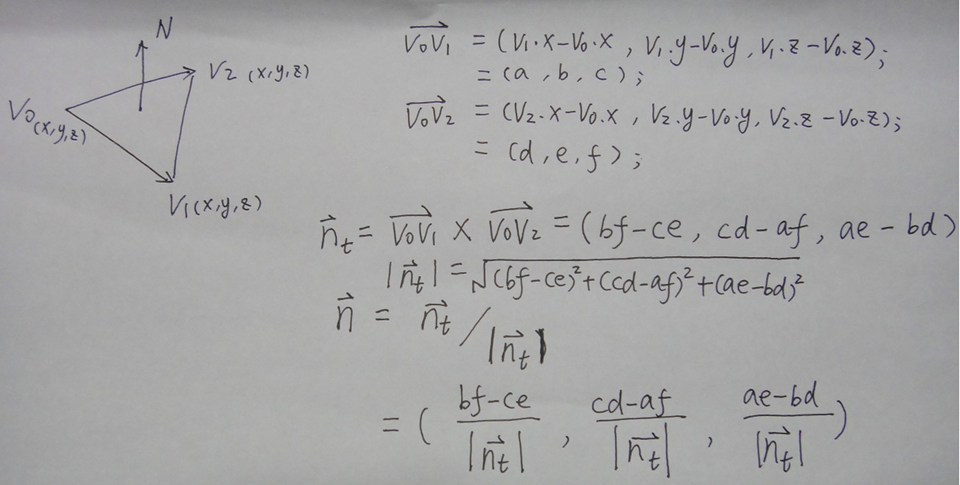 N
V2 (x,y,z)
V0 (x,y,z)
V1 (x,y,z)
V0V1 = (V1.x-V0.x, V1.y-V0.y, V1.z-V0.z);
= (a, b, c);
V0V2 = (V2.x-V0.x, V2.y-V0.y, V2.z-V0.z);
= (d, e, f);
n⃗t = V0V1 × V0V2 = (bf-ce, cd-af, ae-bd)
|n⃗t| = √(bf-ce)²+(cd-af)²+(ae-bd)²
n⃗ = n⃗t / |n⃗t|
= ( bf-ce / |n⃗t| , cd-af / |n⃗t| , ae-bd / |n⃗t| )